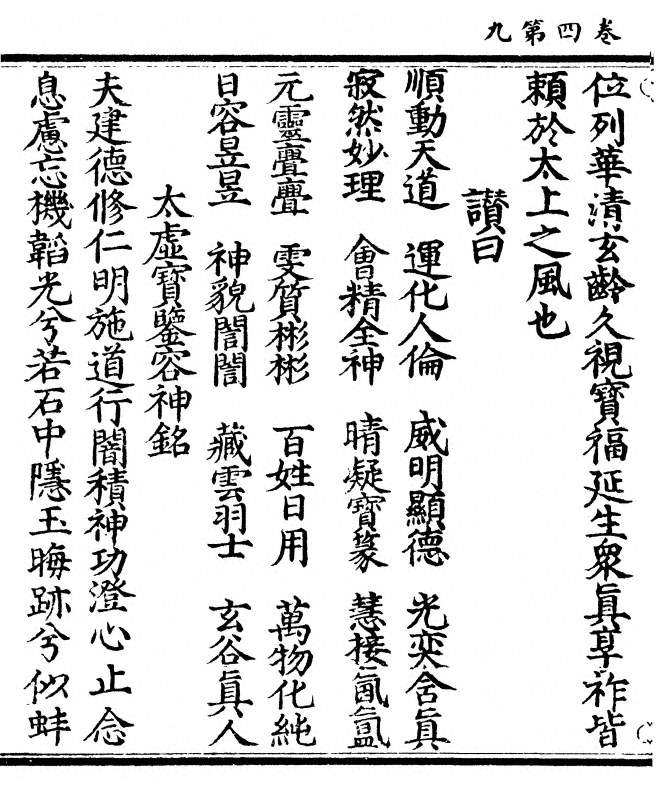 卷四第九
位列華清玄齡久視寶福延生衆眞享祚皆
頼於太上之風也
讃曰
順動天道 運化人倫 威明顯德 光奕含眞
寂然妙理 會精全神 晴凝寶篆 慧接氤氲
元靈亹亹 雯質彬彬 百姓日用 萬物化純
日容昱昱 神貌誾誾 藏雲羽士 玄谷眞人
太虛寶鑒容神銘
夫建德修仁明施道行闇積神功澄心止念
息慮忘機韜光兮若石中隱玉晦跡兮似蚌